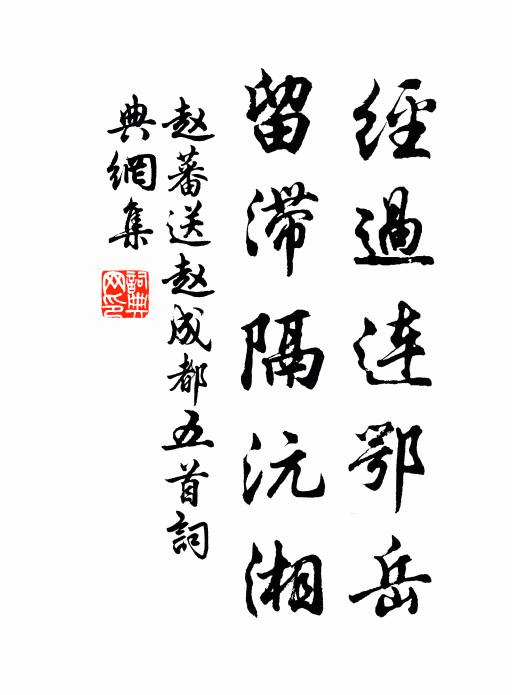 經過连鄂岳
留滞隔沅湘
赵蕃送赵成都五首詞
典網集
詞典网印